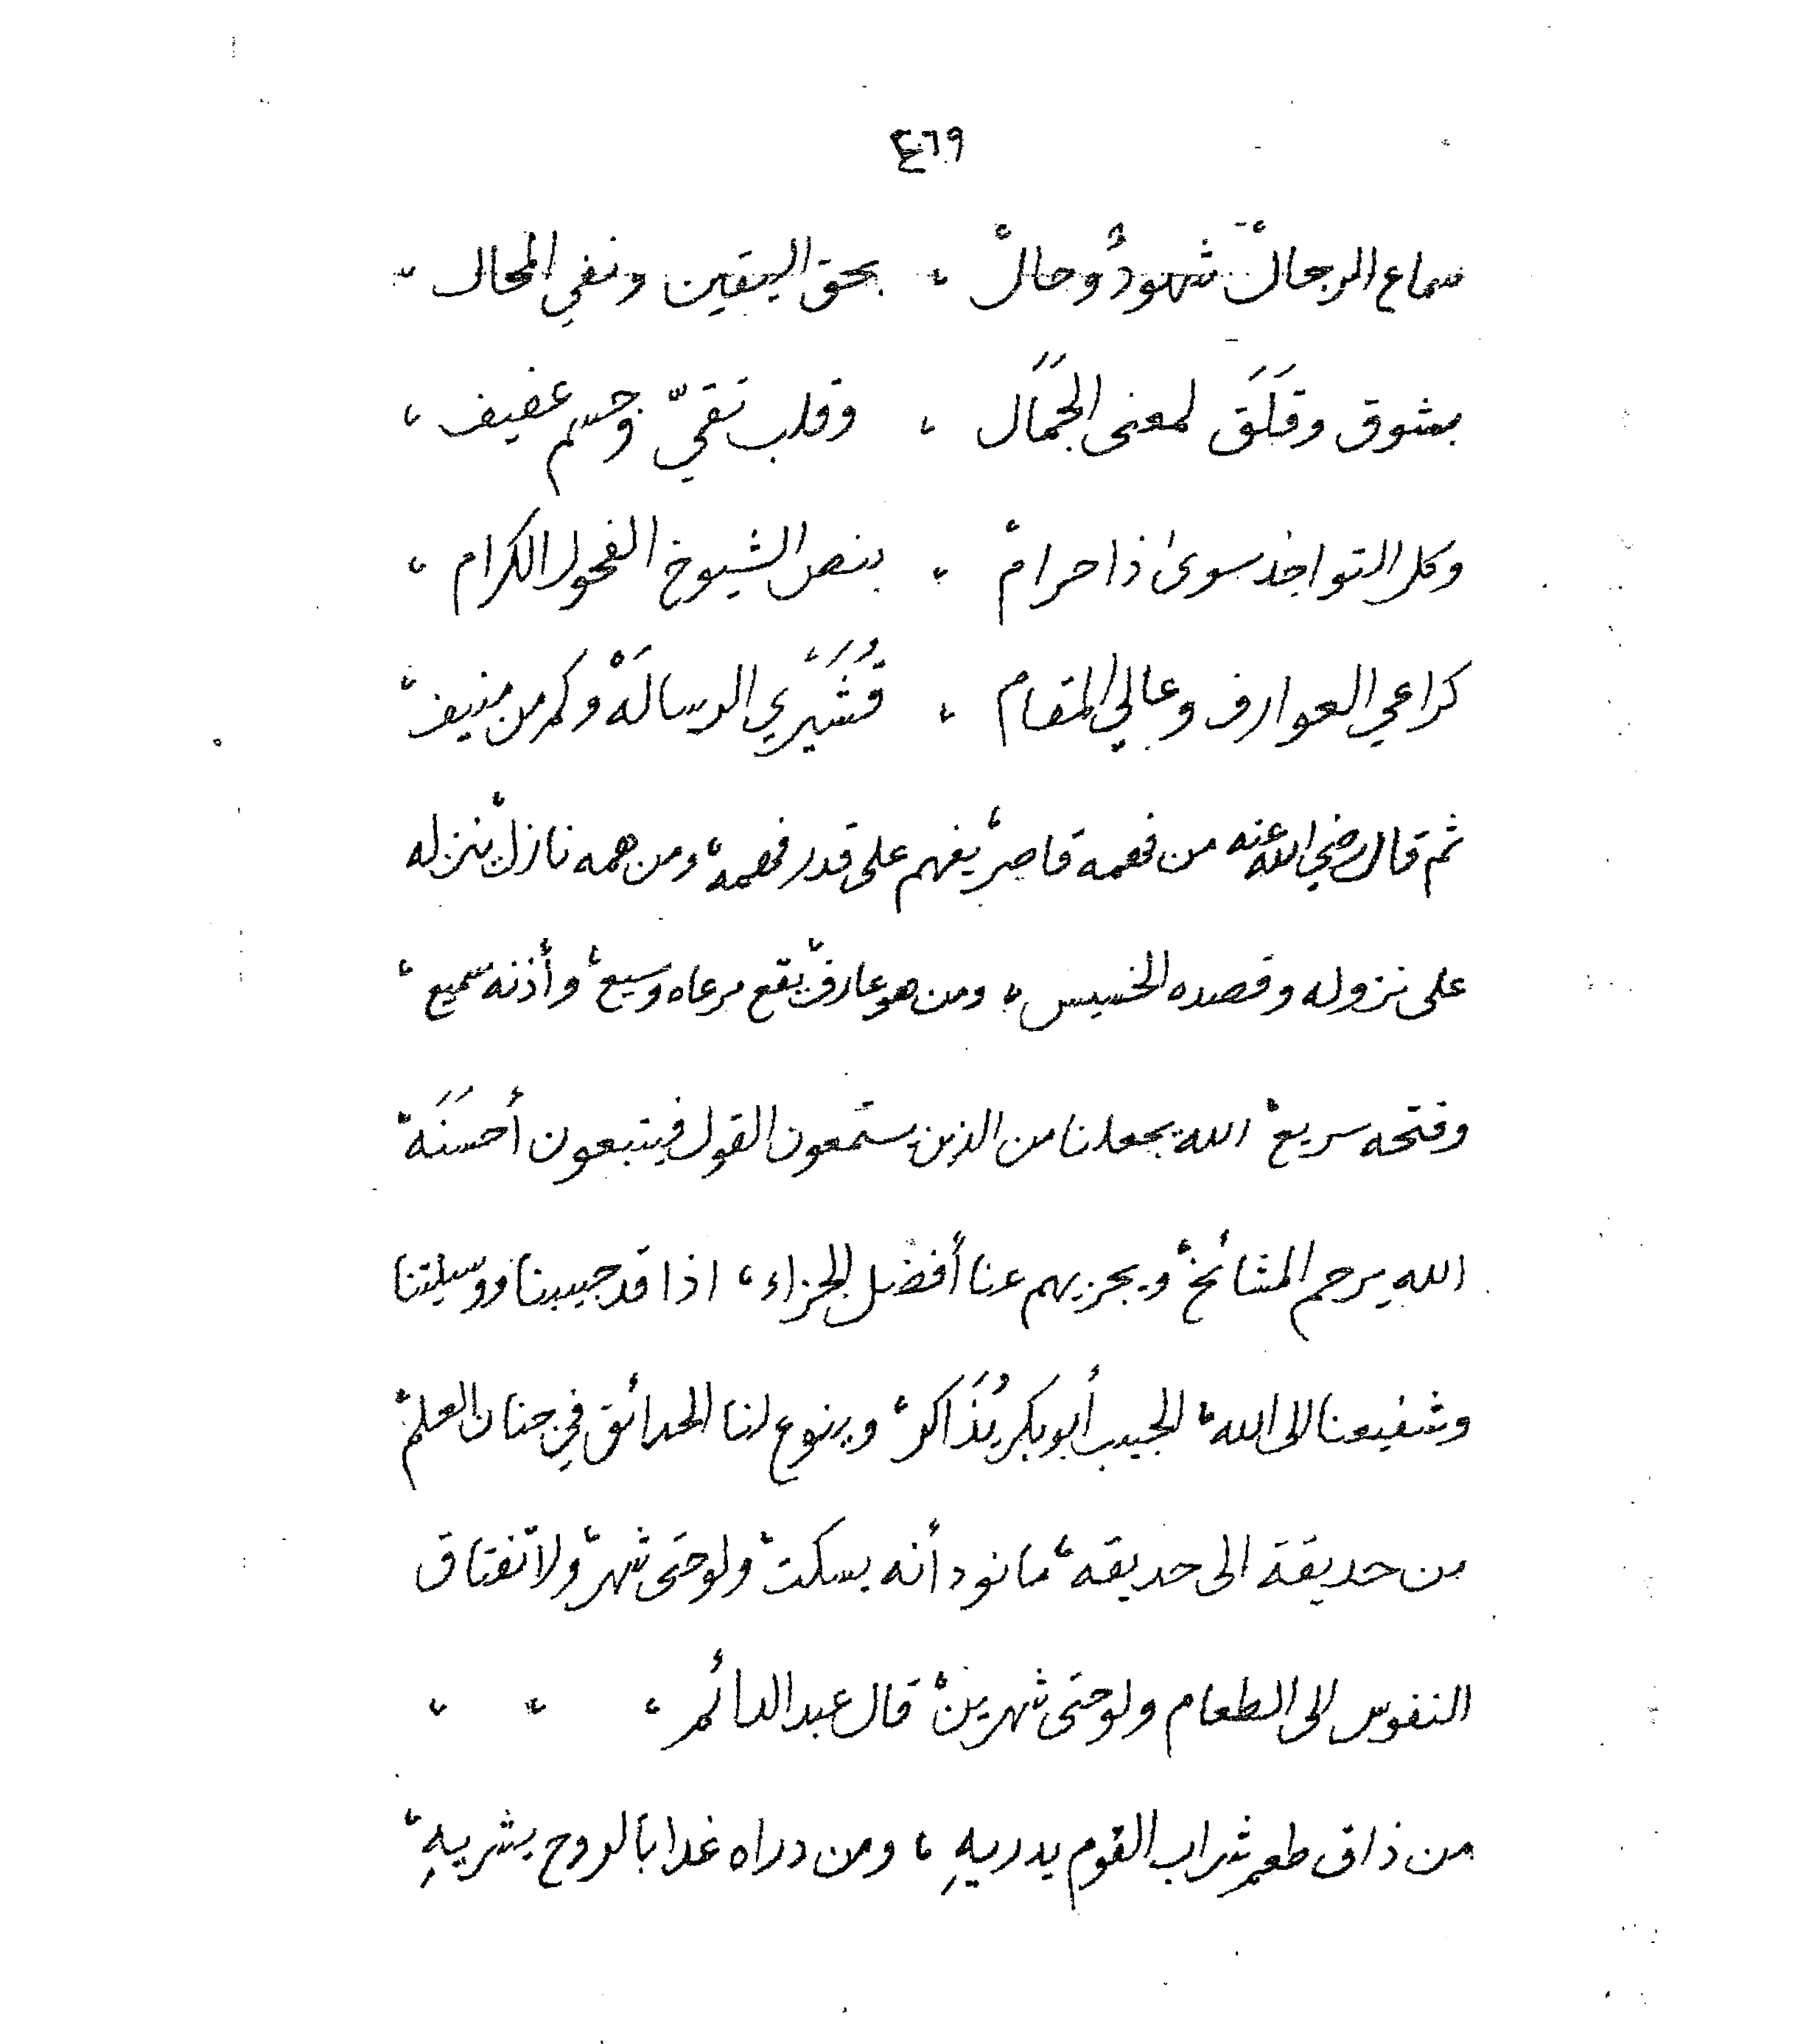 ٤٦٩
سماع الرجالْ شهودٌ وحالْ ، بحق اليقين ونفي المحال ،
بشوق وقَلَق لمعنى الجَمَال ، وقلب نقيّ وجسم عفيف ،
وكل التواجد سوى ذا حرامْ ، بنص الشيوخ الفحول الكرام ،
كراعي العوارف وعالي المقام ، قُشَيَري الرسالَهْ وكم من منيفْ
ثم قال رضي الله عنه من فهمه قاصرْ يفهم على قدر فهمهْ ومن همه نازلْ ينزله
على نزوله وقصده الخسيس ، ومن هو عارفْ يقع مرعاه وسيعْ وأذنه سميع ،
وفتحه سريعْ الله يجعلنا من الذين يستمعون القول فيتبعون أحسَنَهْ
الله يرحم المشائخْ ويجزيهم عنا أفضل الجزاء ، اذا قد حبيبنا ووسيلتنا
وشفيعنا الى اللهْ الحبيب أبوبكر يُذَاكرْ وينوع لنا الحدائق في جنان العلمْ
من حديقة الى حديقهْ مانود أنه يسكتْ ولوحتى شهرْ ولا تفتاق
النفوس الى الطعام ولوحتى شهرينْ قال عبد الدائم ، ، ،
من ذاق طعم شراب القوم يدريهِ ، ومن دراه غدا بالروح يشريهِ ،